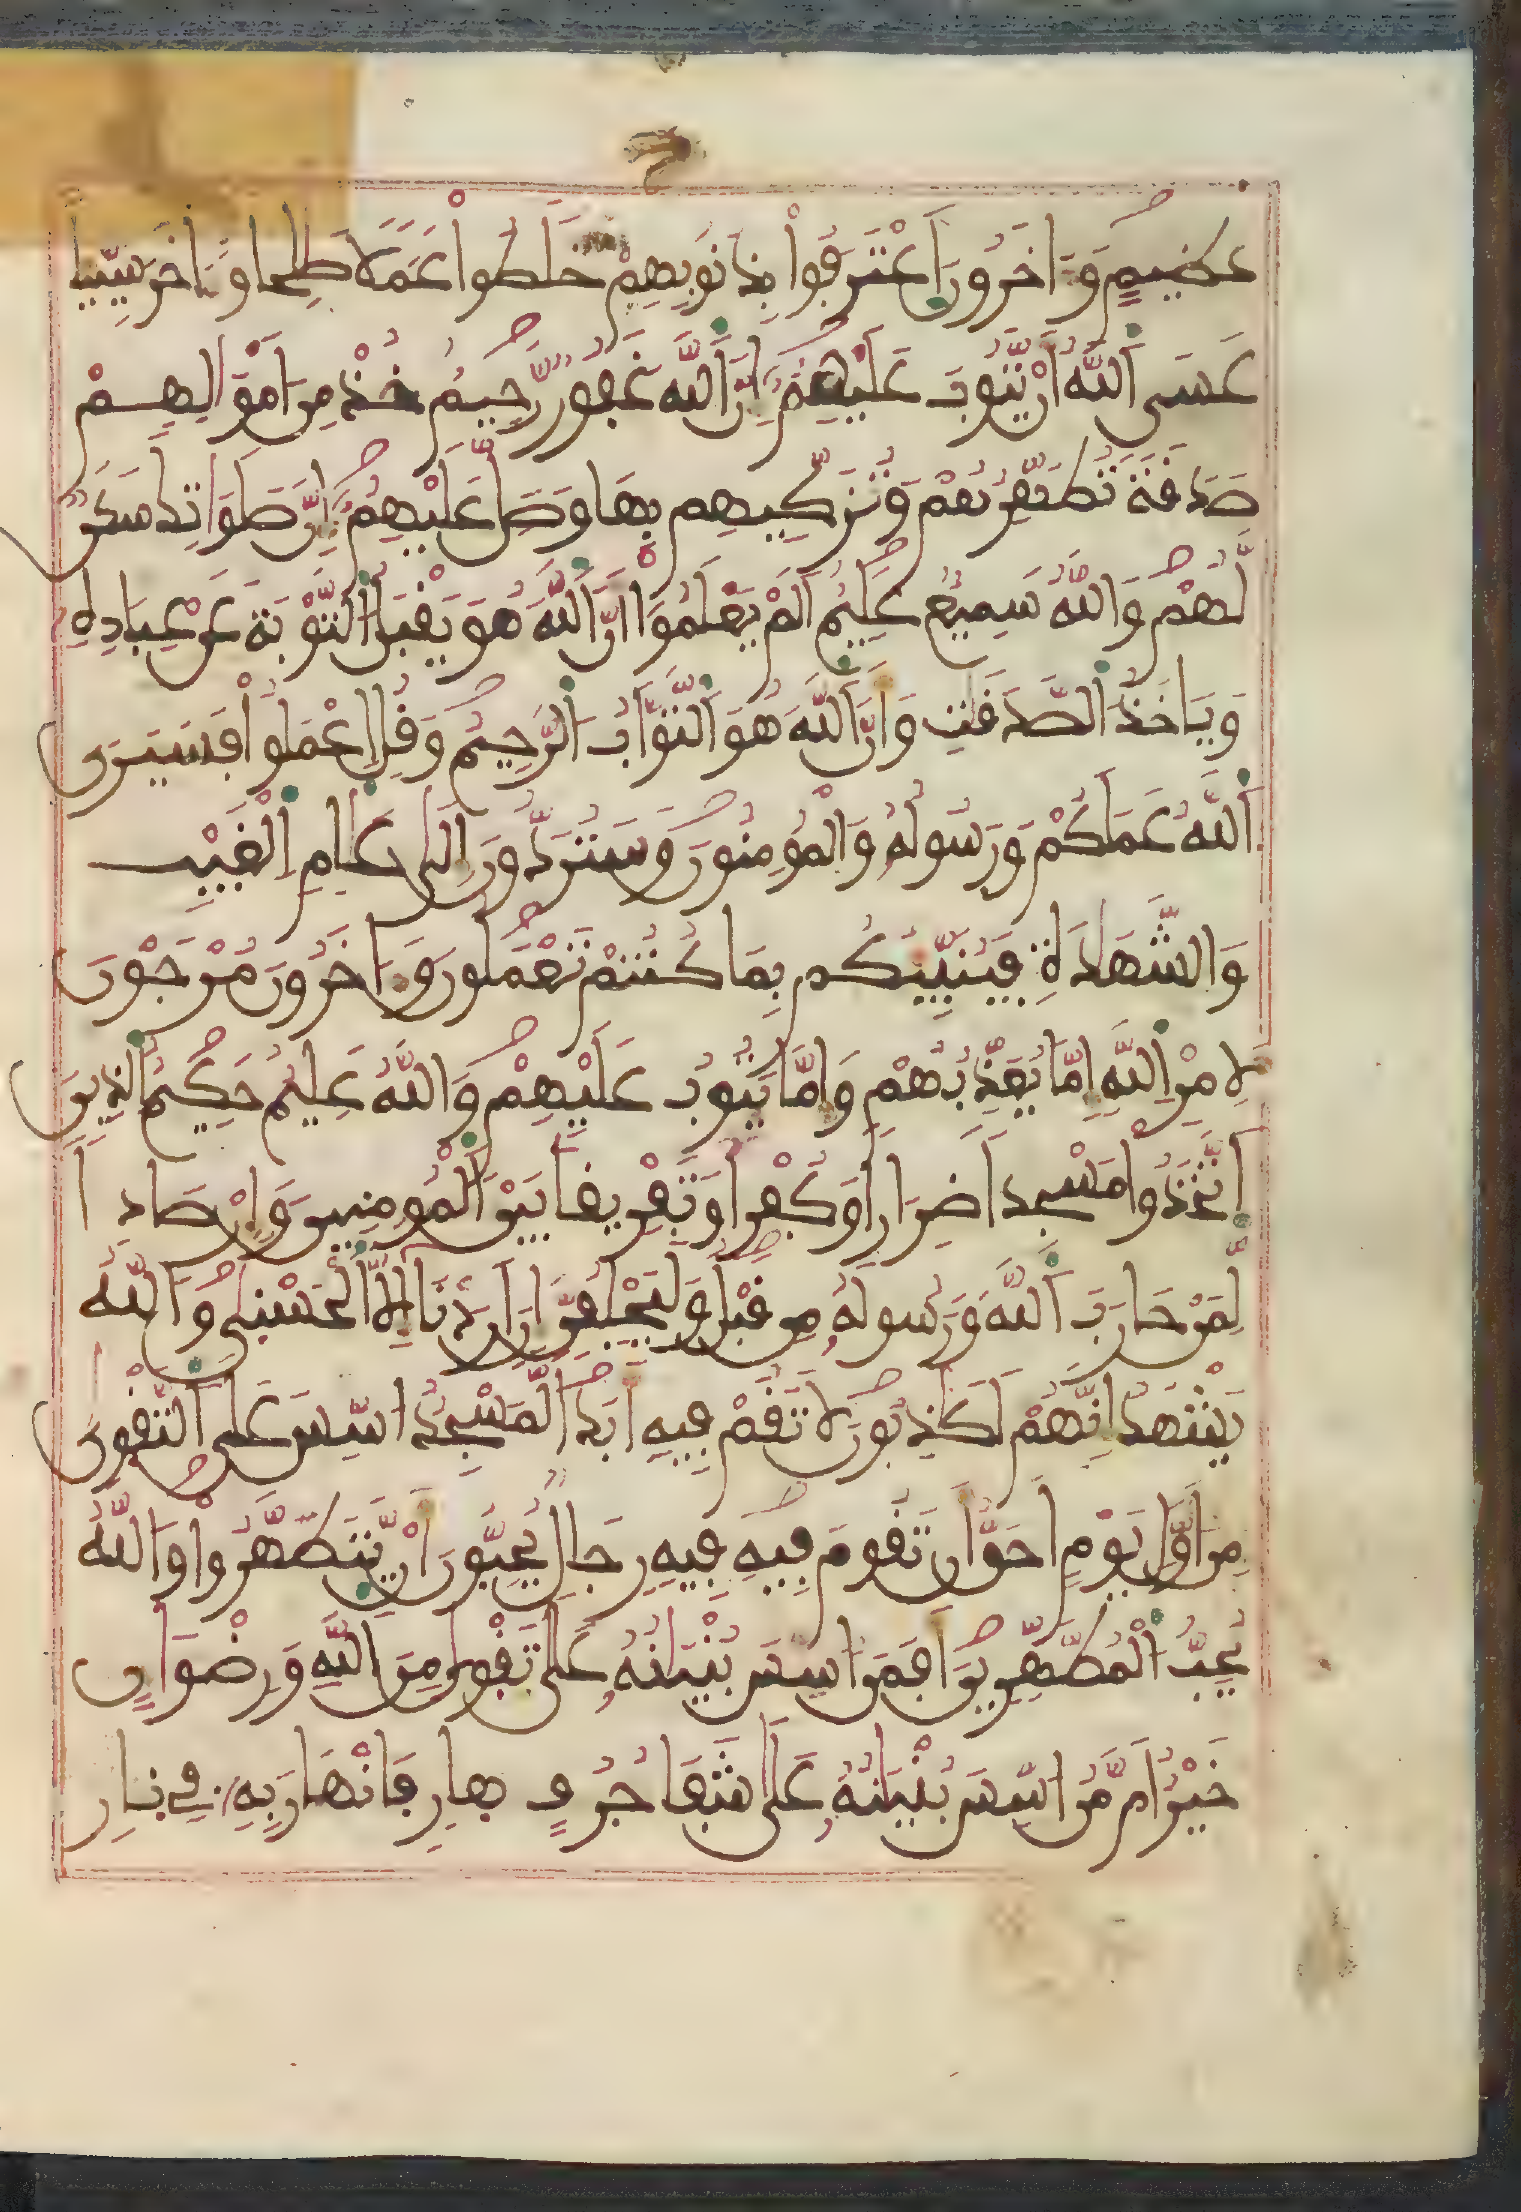 عَظِيمٍ وَءَاخَرُونَ اَعْتَرَفُواْ بِذُنُوبِهِمْ خَلَطُواْ عَمَلًا صَٰلِحًا وَءَاخَرَ سَيِّيًا
عَسَى اَللَّهُ أَنْ يَّتُوبَ عَلَيْهِمُۥ إِنَّ اَللَّهَ غَفُورٌ رَّحِيمٌ خُذْ مِنَ اَمْوَٰلِهِمْ
صَدَقَةً تُطَهِّرُهُمْ وَتُزَكِّيهِم بِهَا وَصَلِّ عَلَيْهِمُۥ إِنَّ صَلَوَاتِكَ سَكَنٌ
لَّهُمْ وَاللَّهُ سَمِيعٌ عَلِيمٌ اَلَمْ يَعْلَمُواْ أَنَّ اَللَّهَ هُوَ يَقْبَلُ اَلتَّوْبَةَ عَنْ عِبَادِهِ
وَيَاخُذُ اَلصَّدَقَٰتِ وَأَنَّ اَللَّهَ هُوَ اَلتَّوَّابُ اَلرَّحِيمُ وَقُلِ اِعْمَلُواْ فَسَيَرَى
اَللَّهُ عَمَلَكُمْ وَرَسُولُهُ وَالْمُومِنُونَ وَسَتُرَدُّونَ إِلَى عَٰلِمِ اِلْغَيْبِ
وَالشَّهَٰدَةِ فَيُنَبِّئُكُم بِمَا كُنتُمْ تَعْمَلُونَ وَءَاخَرُونَ مُرْجَوْنَ
لِأَمْرِ اِللَّهِ إِمَّا يُعَذِّبُهُمْ وَإِمَّا يَتُوبُ عَلَيْهِمْ وَاللَّهُ عَلِيمٌ حَكِيمٌ اَلذِينَ
اَتَّخَذُواْ مَسْجِدًا ضِرَارًا وَكُفْرًا وَتَفْرِيقًا بَيْنَ اَلْمُومِنِينَ وَإِرْصَادًا
لِّمَنْ حَارَبَ اَللَّهَ وَرَسُولَهُ مِن قَبْلُ وَلَيَحْلِفُنَّ إِنَ اَرَدْنَا إِلَّا اَلْحُسْنَى وَاللَّهُ
يَشْهَدُ إِنَّهُمْ لَكَٰذِبُونَ لَا تَقُمْ فِيهِ أَبَدًا لَّمَسْجِدٌ اسِّسَ عَلَى اَلتَّقْوَى
مِنَ اَوَّلِ يَوْمٍ اَحَقُّ أَن تَقُومَ فِيهِ فِيهِ رِجَالٌ يُحِبُّونَ أَنْ يَّتَطَهَّرُواْ وَاللَّهُ
يُحِبُّ اَلْمُطَّهِّرِينَ أَفَمَنُ اسِّسَ بُنْيَٰنُهُ عَلَى تَقْوَى مِنَ اَللَّهِ وَرِضْوَانٍ
خَيْرٌ اَم مَّنُ اسِّسَ بُنْيَٰنُهُ عَلَى شَفَا جُرُفٍ هَارٍ فَانْهَارَ بِهِ فِي نَارِ